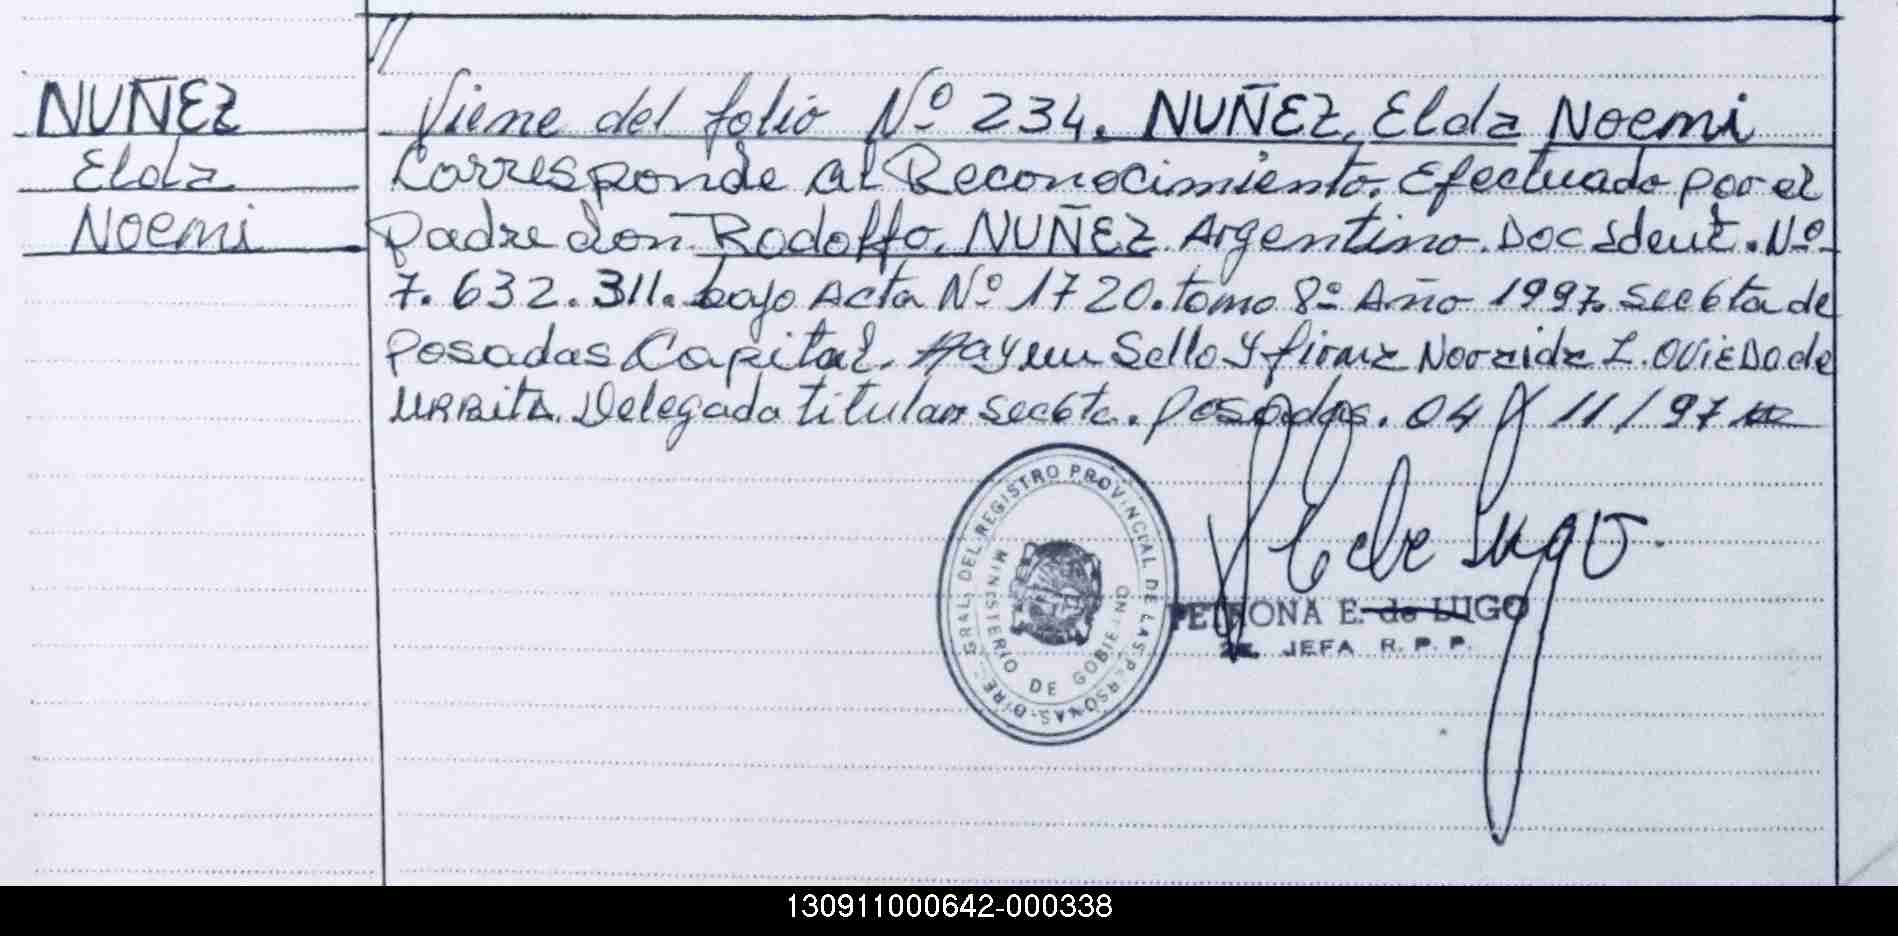 //
NUÑEZ
Elda
Noemi
Viene del folio Nº 234. NUÑEZ, Elda Noemi
Corresponde al Reconocimiento. Efectuado por el
Padre don Rodolfo. NUÑEZ. Argentino. Doc Ident. Nº
7.632.311. bajo Acta Nº 1720. tomo 8º Año 1997. Secc 6ta de
Posadas Capital. Hay un Sello y firma Noraida L. OVIEDO de
URBITA. Delegada titular Secc 6ta. Posadas. 04/11/97
H E de Lugo.
DIRE. GRAL. DEL REGISTRO PROVINCIAL DE LAS PERSONAS
MINISTERIO DE GOBIERNO
PETRONA E. de LUGO
2a. JEFA R. P. P.
130911000642-000338